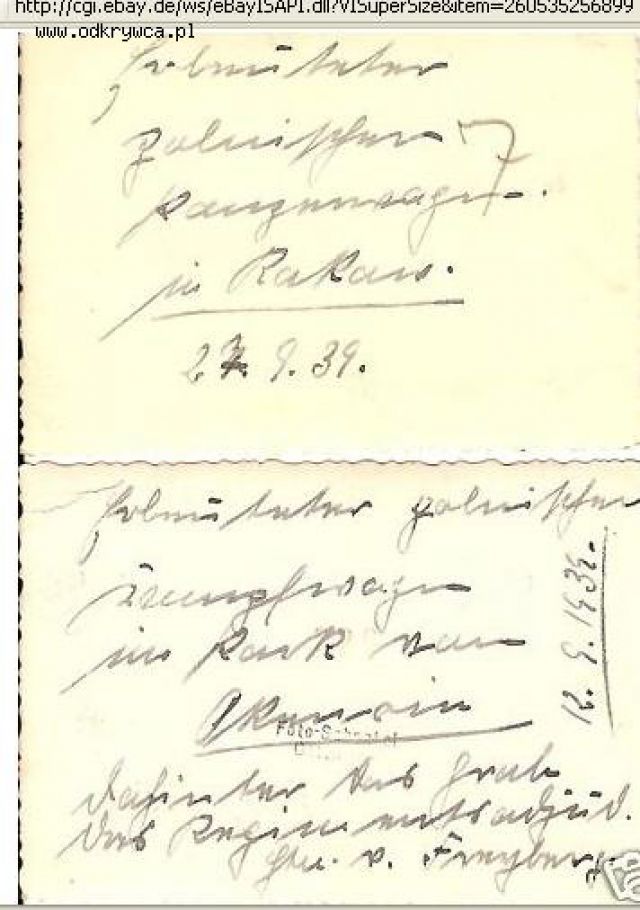 http://cgi.ebay.de/ws/eBayISAPI.dll?ViSuperSize&item=260535256899
www.odkrywca.pl
Erbeuteter
polnischer
Panzerwagen
in Krakau.
27. 9. 39.
Erbeuteter polnischer
Kampfwagen
im Park von
12. 9. 1939.
Foto-
dahinter das Grab
des Regimentsadjud.
v. Freyberg